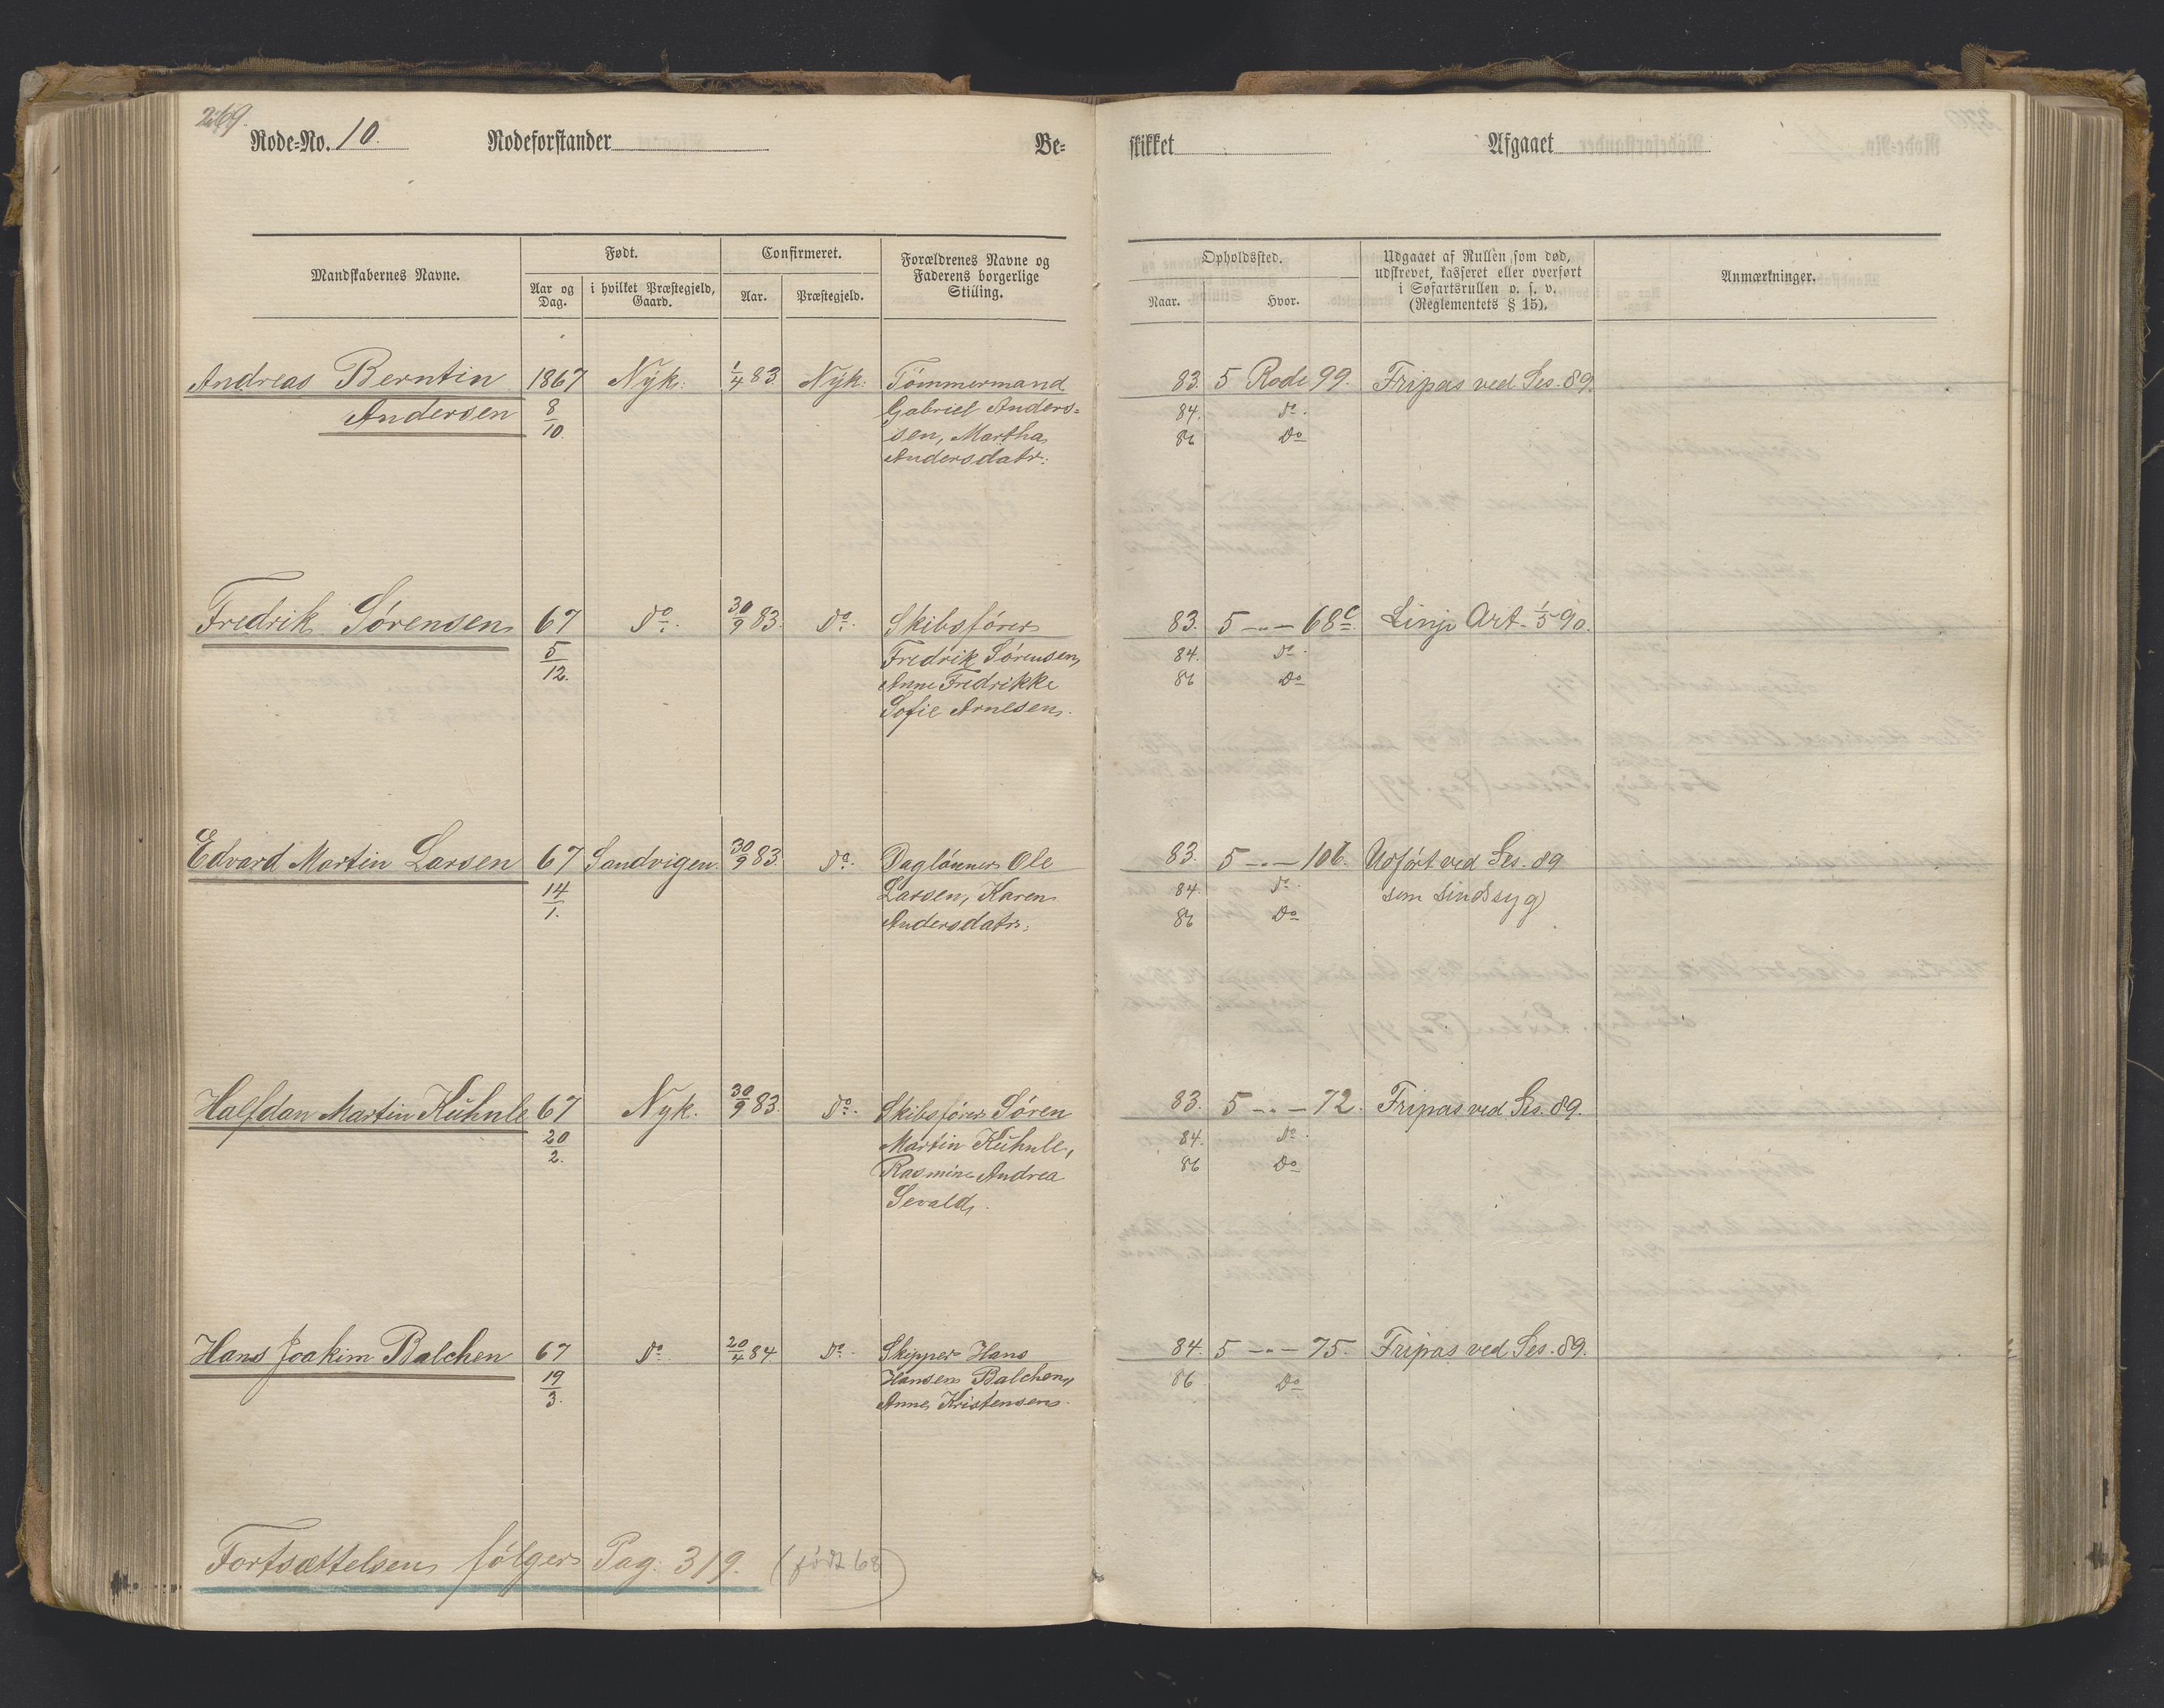 269.
Rode-No. 10. Rodeforstander Be-
skikket Afgaaet
Mandskabernes Navne.
Født.
Aar og Dag.
i hvilket Præstegjeld, Gaard.
Confirmeret.
Aar.
Præstegjeld.
Forældrenes Navne og
Faderens borgerlige
Stilling.
Opholdssted.
Naar.
Hvor.
Udgaaet af Rullen som død,
udskrevet, kasseret eller overført
i Søfartsrullen o. s. v.
(Reglementets § 15).
Anmærkninger.
Andreas Berntin 1867 Nyk. 1/4 83. Nyk. Tømmermand 83. 5 Rode 99. Fripas ved Ses. 89.
Andersen 8/10. Gabriel Anders= 84. Do.
sen, Martha 86 Do
Andersdatr.
Fredrik Sørensen 67 Do. 30/9 83. Do. Skibsfører 83. 5 -"- 68c. Linje Art. 1/5 90.
5/12. Fredrik Sørensen, 84. Do.
Anne Fredrikke 86 Do
Sofie Arnesen.
Edvard Martin Larsen 67 Sandvigen. 30/9 83. Do. Daglønner Ole 83. 5 -"- 106. Udført ved Ses. 89
14/1. Larsen, Karen 84. Do. som sindssyg
Andersdatr. 86 Do
Halfdan Martin Kühnle 67 Nyk. 30/9 83. Do. Skibsfører Søren 83. 5 -"- 72. Fripas ved Ses. 89.
20/2. Martin Kühnle, 84. Do.
Rasmine Andrea 86 Do
Sevald.
Hans Joakim Balchen 67 Do 20/4 84 Do. Skipper Hans 84. 5 -"- 75. Fripas ved Ses. 89.
19/3. Hansen Balchen, 86 Do
Anne Kristensen.
Fortsættelsen følger Pag. 319. (født 68)